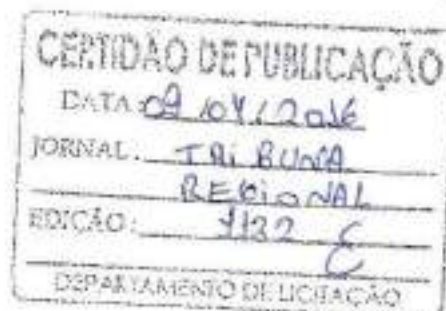 CERTIDÃO DE PUBLICAÇÃO
DATA: 09/04/2016
JORNAL: TRIBUNA
REGIONAL
EDIÇÃO: 1132
DEPARTAMENTO DE LICITAÇÃO